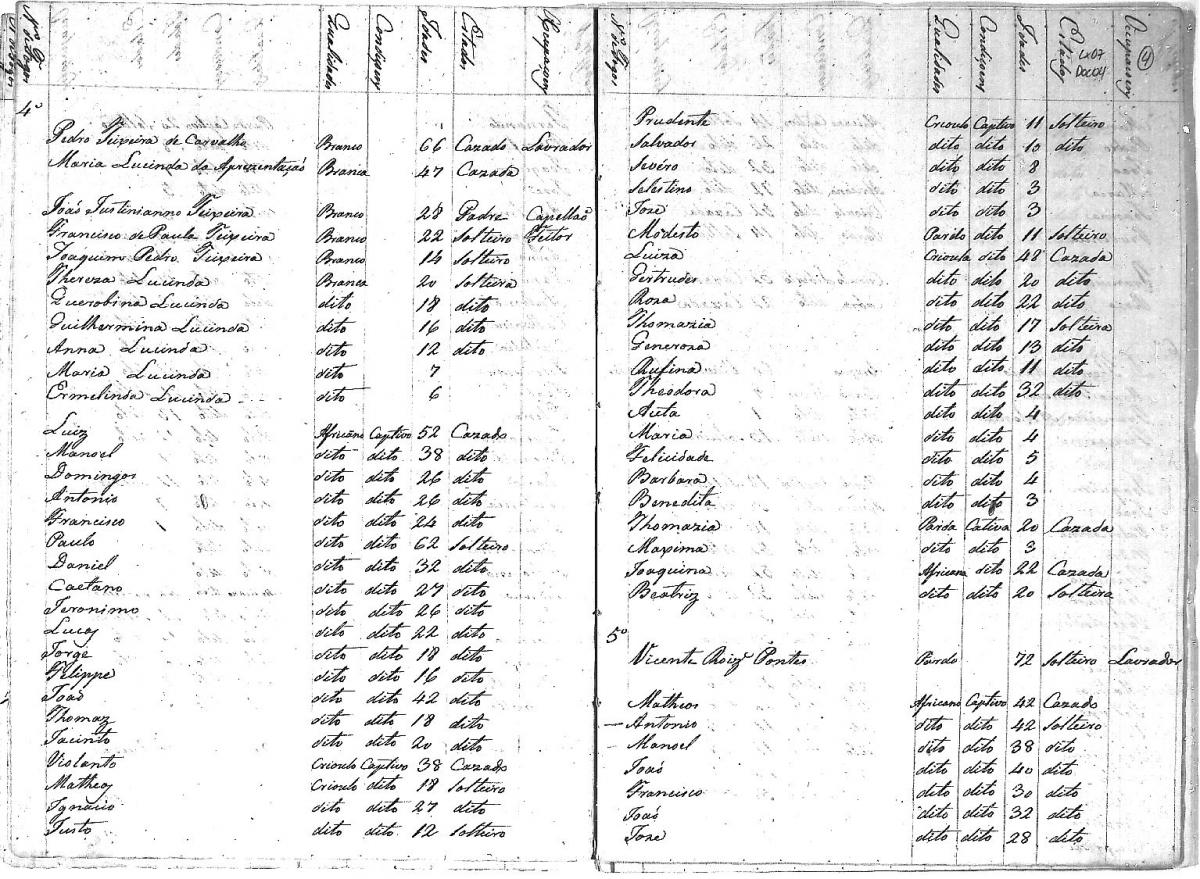 Nos. de Fogos Qualidades Condiçoens Idades Estados Occupaçoens
4º
Pedro Teixeira de Carvalho Branco 66 Cazado Lavrador
Maria Lucinda da Aprezentaçaõ Branca 47 Cazada
Joaõ Justinianno Teixeira Branco 28 Padre Capellaõ
Francisco de Paula Teixeira Branco 22 Solteiro Feitor
Joaquim Pedro Teixeira Branco 14 Solteiro
Thereza Lucinda Branca 20 Solteira
Querobina Lucinda dito 18 dito
Guilhermina Lucinda dito 16 dito
Anna Lucinda dito 12 dito
Maria Lucinda dito 7
Ermelinda Lucinda dito 6
Luiz Africano Captivo 52 Cazado
Manoel dito dito 38 dito
Domingos dito dito 26 dito
Antonio dito dito 26 dito
Francisco dito dito 24 dito
Paulo dito dito 62 Solteiro
Daniel dito dito 32 dito
Caetano dito dito 27 dito
Jeronimo dito dito 26 dito
Lucas dito dito 22 dito
Jorge dito dito 18 dito
Felippe dito dito 16 dito
Joaõ dito dito 42 dito
Thomaz dito dito 18 dito
Jacinto dito dito 20 dito
Violanto Crioulo Captivo 38 Cazado
Matheos Crioulo dito 18 Solteiro
Ignacio dito dito 27 dito
Justo dito dito 12 Solteiro
Nos. de Fogos Qualidades Condiçoens Idades Estados Occupaçoens
4
Lx07
Doc04
Prudente Crioulo Captivo 11 Solteiro
Salvador dito dito 13 dito
Sevéro dito dito 8
Selestino dito dito 3
Joze dito dito 3
Modesto Pardo dito 11 Solteiro
Luiza Crioula dito 42 Cazada
Gertrudes dito dito 20 dito
Roza dito dito 22 dito
Thomazia dito dito 17 Solteira
Generoza dito dito 13 dito
Rufina dito dito 11 dito
Theodora dito dito 32 dito
Auta dito dito 4
Maria dito dito 4
Felicidade dito dito 5
Barbara dito dito 4
Benedita dito dito 3
Thomazia Parda Cativa 20 Cazada
Maxima dito dito 3
Joaquina Africana dito 22 Cazada
Beatriz dito dito 20 Solteira
5º
Vicente Roiz Pontes Pardo 72 Solteiro Lavrador
Matheos Africano Captivo 42 Cazado
Antonio dito dito 42 Solteiro
Manoel dito dito 38 dito
Joaõ dito dito 40 dito
Francisco dito dito 30 dito
Joaõ dito dito 32 dito
Joze dito dito 28 dito